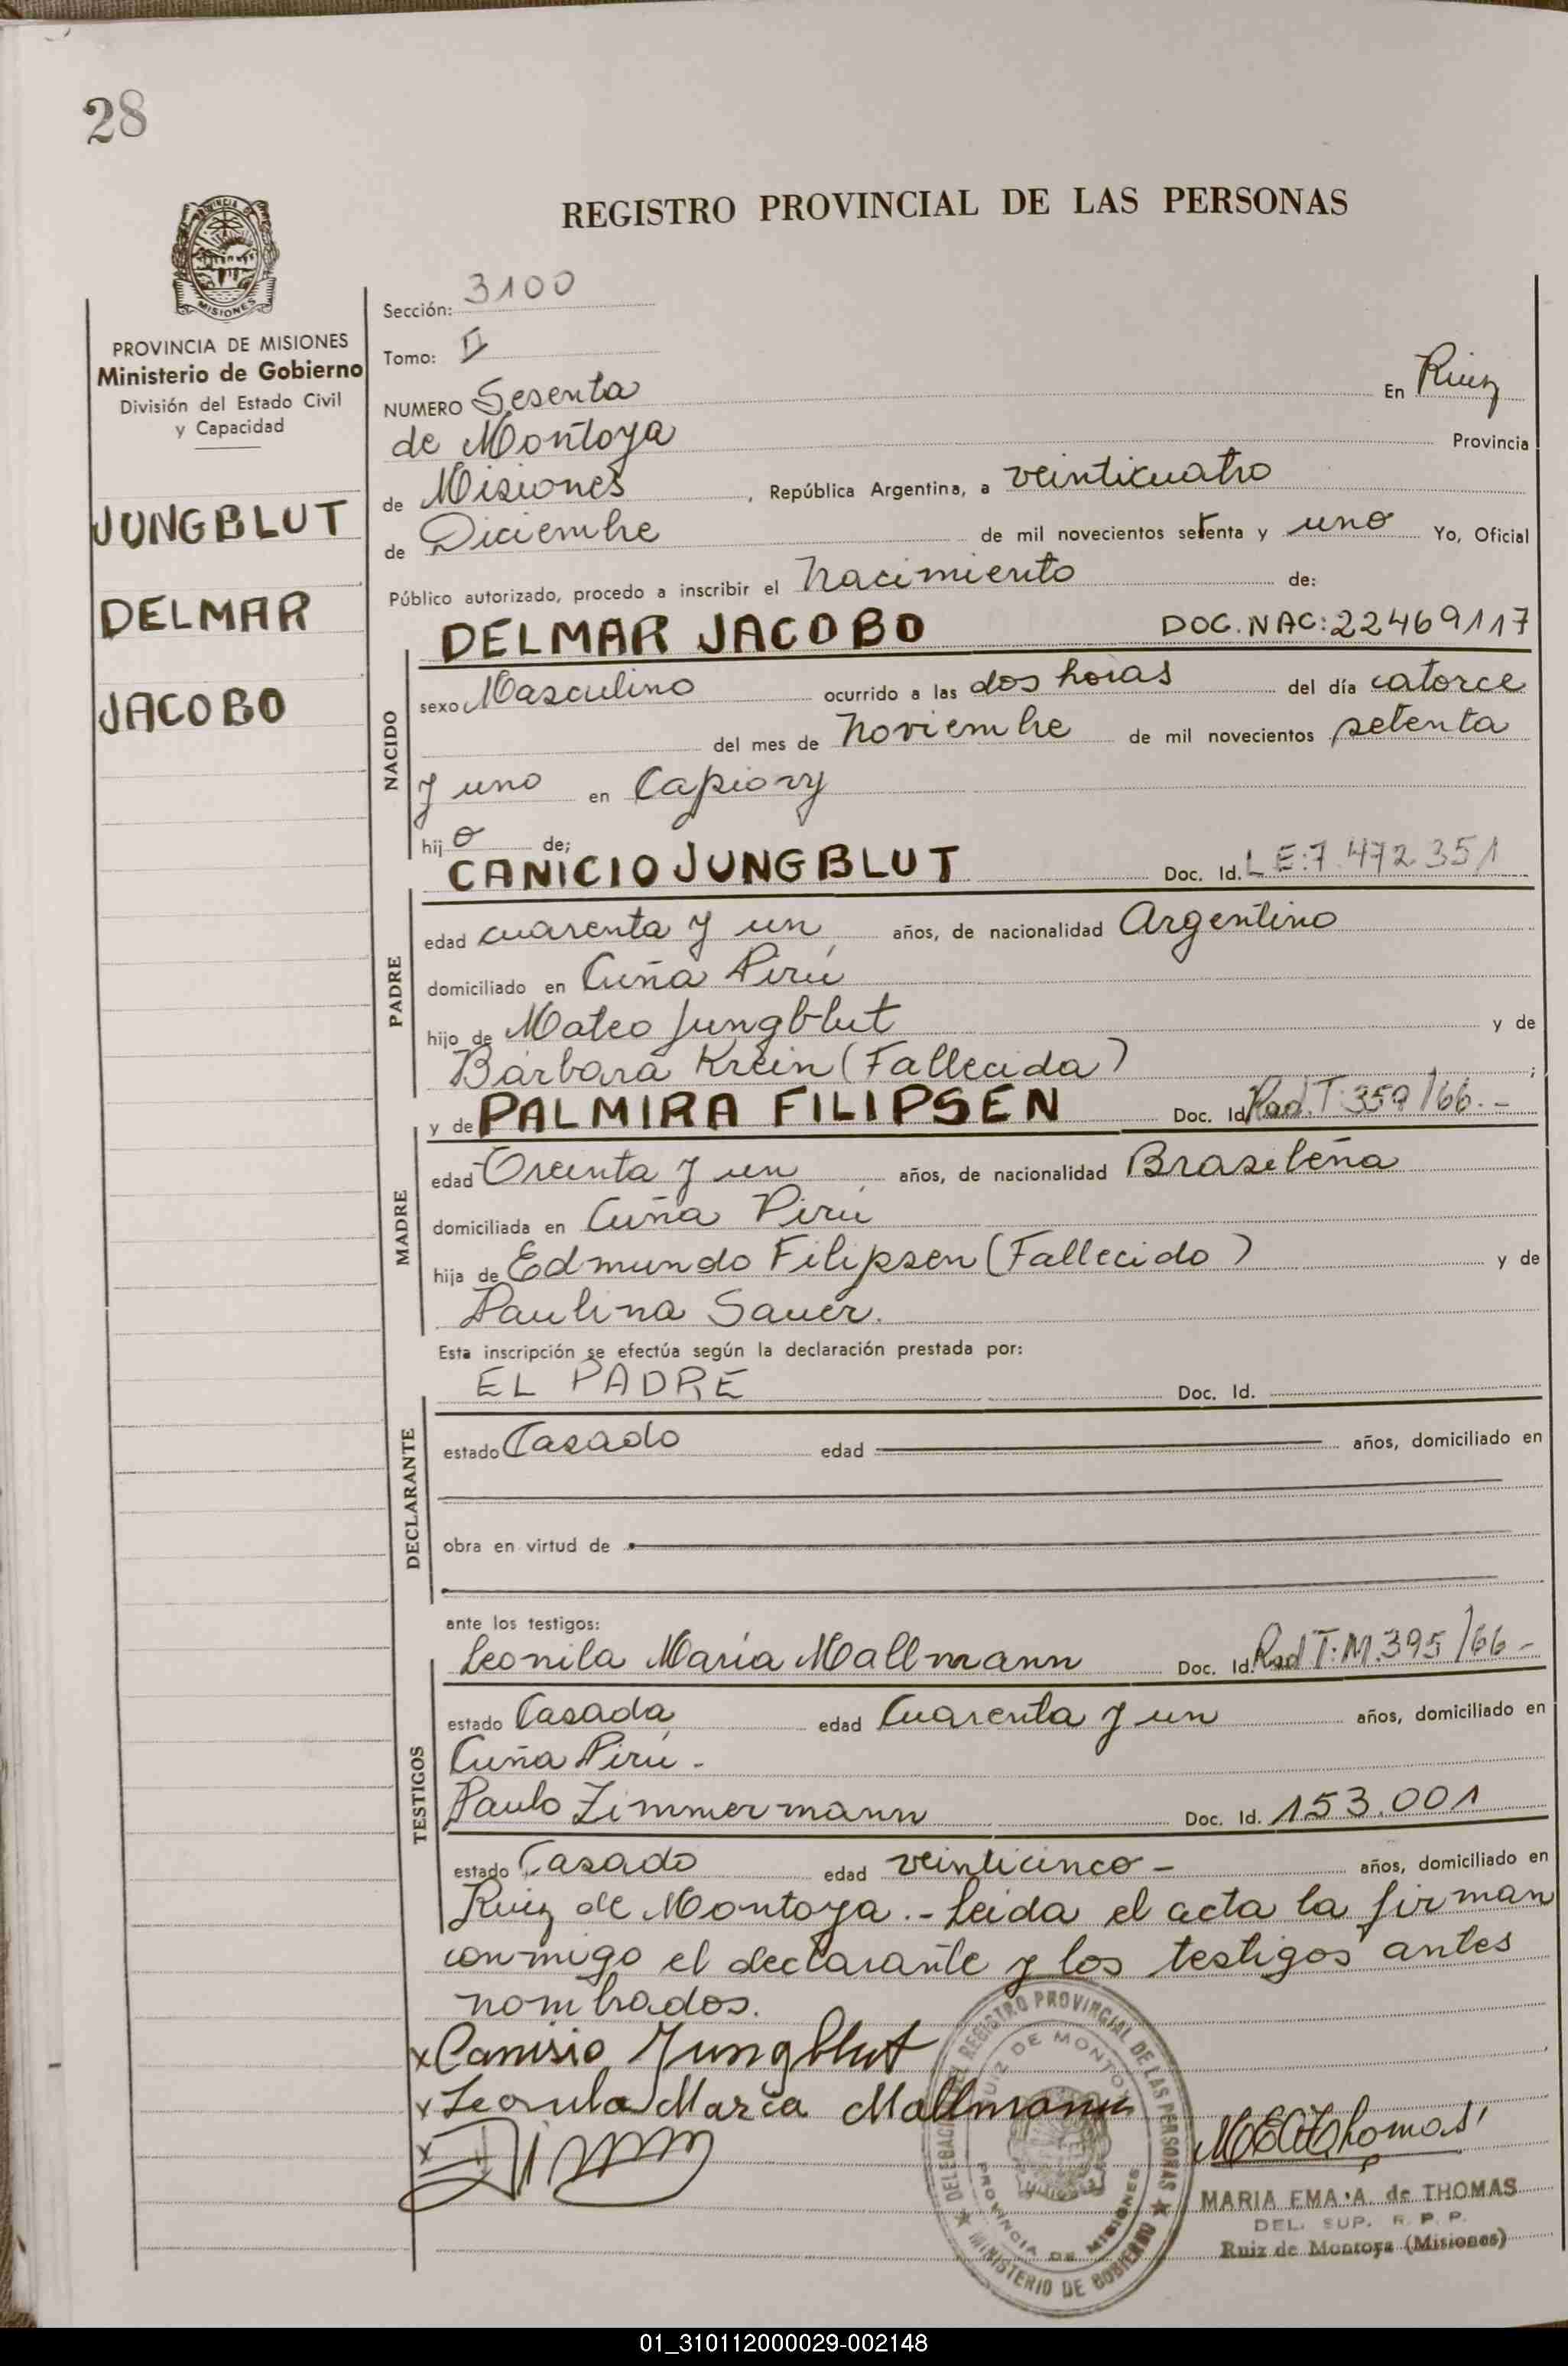 28
REGISTRO PROVINCIAL DE LAS PERSONAS
PROVINCIA DE MISIONES
Ministerio de Gobierno
División del Estado Civil
y Capacidad
JUNGBLUT
DELMAR
JACOBO
Sección: 3100
Tomo: II
NUMERO Sesenta En Ruiz
de Montoya Provincia
de Misiones, República Argentina, a veinticuatro
de Diciembre de mil novecientos setenta y uno Yo, Oficial
Público autorizado, procedo a inscribir el Nacimiento de:
DELMAR JACOBO DOC.NAC:22469117
NACIDO
sexo Masculino ocurrido a las dos horas del día catorce
del mes de Noviembre de mil novecientos setenta
y uno en Capiovy
hijo de;
CANICIO JUNGBLUT Doc. Id. L E:7.472.351
PADRE
edad cuarenta y un años, de nacionalidad Argentino
domiciliado en Cuña Pirú
hijo de Mateo Jungblut y de
Bárbara Krein (Fallecida) ;
y de PALMIRA FILIPSEN Doc. Id. Rad.T:359/66.-
MADRE
edad Treinta y un años, de nacionalidad Brasileña
domiciliada en Cuña Pirú
hija de Edmundo Filipsen (Fallecido) y de
Paulina Sauer.
Esta inscripción se efectúa según la declaración prestada por:
EL PADRE Doc. Id.
DECLARANTE
estado Casado edad años, domiciliado en
obra en virtud de
ante los testigos:
Leonila María Mallmann Doc. Id. Rad T:M.395/66-
TESTIGOS
estado Casada edad Cuarenta y un años, domiciliado en
Cuña Pirú -
Paulo Zimmermann Doc. Id. 153.001
estado Casado edad veinticinco - años, domiciliado en
Ruiz de Montoya.- Leida el acta la firman
conmigo el declarante y los testigos antes
nombrados.
x Canisio Jungblut
x Leonila Maria Mallmann
x
DELEGACION DEL REGISTRO PROVINCIAL DE LAS PERSONAS
RUIZ DE MONTOYA
PROVINCIA DE MISIONES
MINISTERIO DE GOBIERNO
MARIA EMA A. de THOMAS
DEL. SUP. R. P. P.
Ruiz de Montoya (Misiones)
01_310112000029-002148